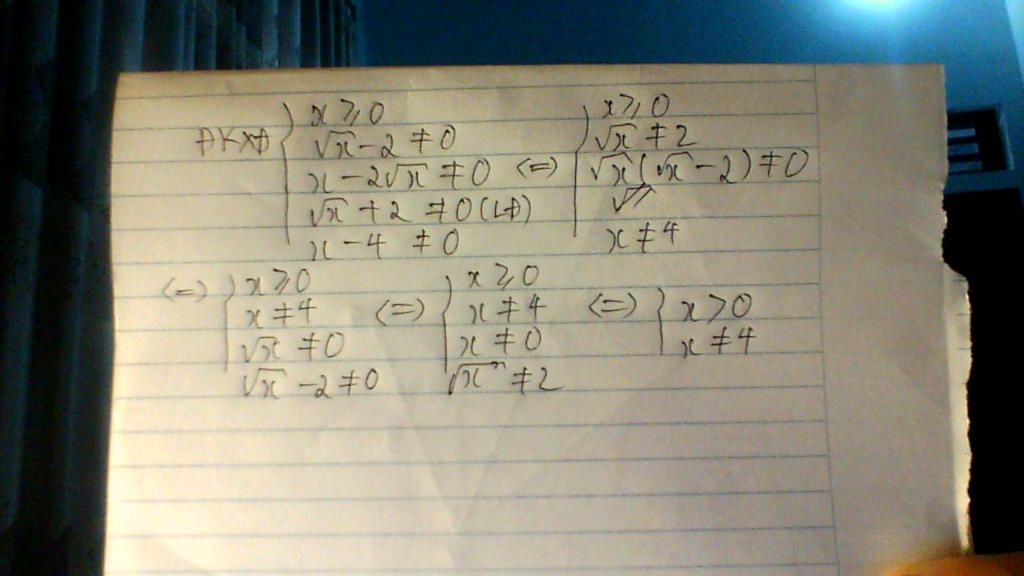 ĐKXĐ { x ≥ 0
√x - 2 ≠ 0
x - 2√x ≠ 0
√x + 2 ≠ 0 (LĐ)
x - 4 ≠ 0
(=) { x ≥ 0
√x ≠ 2
√x(√x - 2) ≠ 0
x ≠ 4
(=) { x ≥ 0
x ≠ 4
√x ≠ 0
√x - 2 ≠ 0
(=) { x ≥ 0
x ≠ 4
x ≠ 0
√x ≠ 2
(=) { x > 0
x ≠ 4